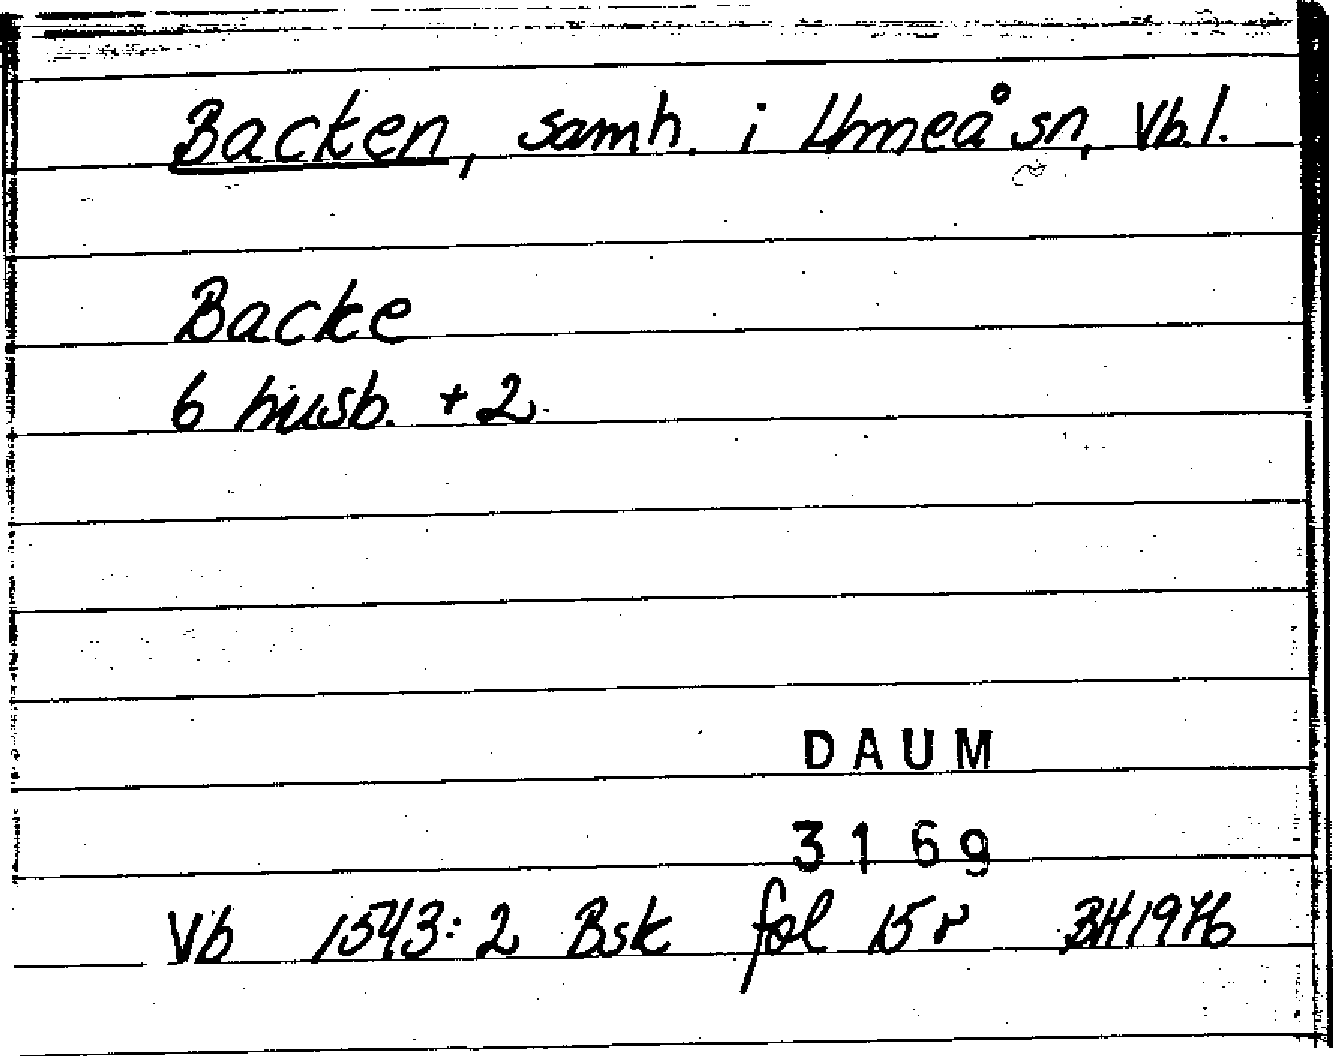 Backen, samh. i Umeå sn, Vb.l.
Backe
6 husb. + 2
DAUM
3169
Vb 1543:2 Bsk fol 15 r BH1976